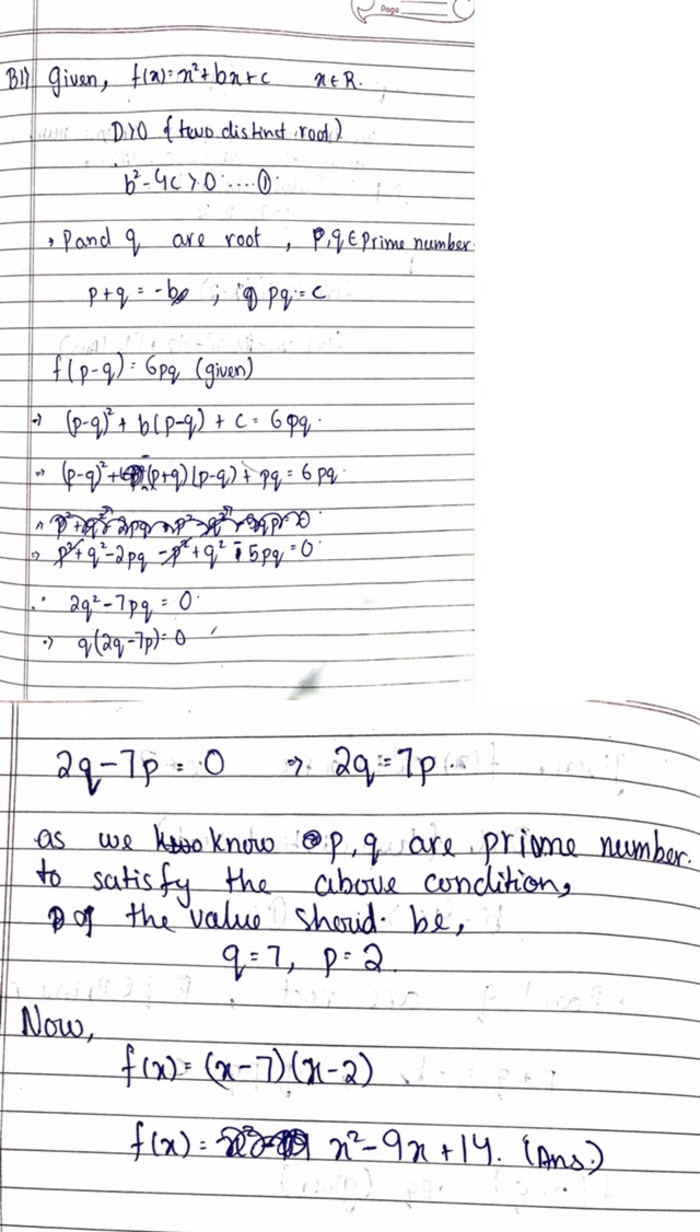 Page
B1) Given, f(x)=x²+bx+c x∈R.
D>0 {two distinct root)
b²-4c>0 ....①
→ P and q are root, P,q∈Prime number.
p+q = -b ; pq = c
f(p-q) = 6pq (given)
⇒ (p-q)² + b(p-q) + c = 6pq.
⇒ (p-q)² + -(p+q)(p-q) + pq = 6pq.
⇒ p²+q²-2pq - p²+q² - 5pq = 0
∴ 2q²-7pq = 0
⇒ q(2q-7p)=0
2q-7p = 0 ⇒ 2q=7p.
as we know p, q are prime number.
to satisfy the above condition,
the value shoud be,
q=7, p=2.
Now,
f(x)= (x-7)(x-2)
f(x)= x²-9x+14. (Ans.)